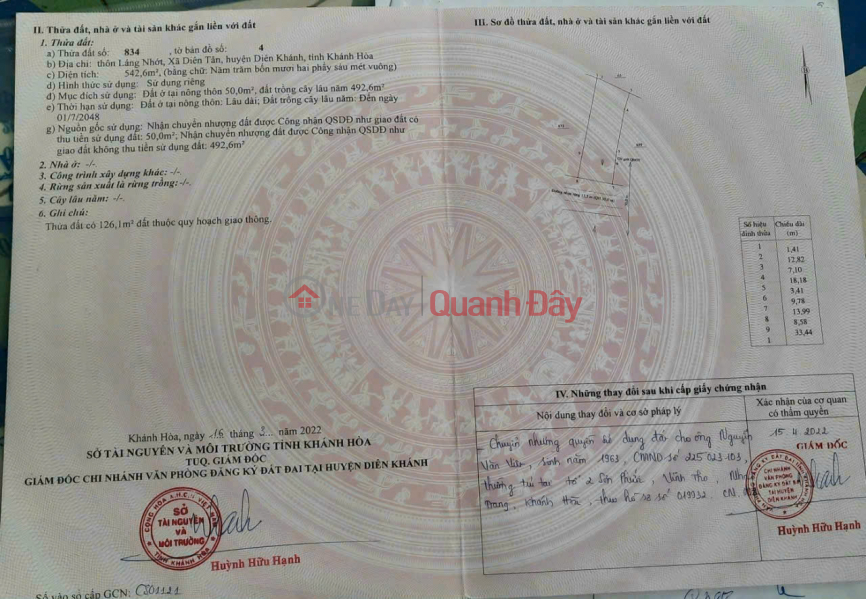 II. Thửa đất, nhà ở và tài sản khác gắn liền với đất
1. Thửa đất:
a) Thửa đất số: 834 , tờ bản đồ số: 4
b) Địa chỉ: thôn Láng Nhớt, Xã Diên Tân, huyện Diên Khánh, tỉnh Khánh Hòa
c) Diện tích: 542,6m², (bằng chữ: Năm trăm bốn mươi hai phẩy sáu mét vuông)
d) Hình thức sử dụng: Sử dụng riêng
đ) Mục đích sử dụng: Đất ở tại nông thôn 50,0m², đất trồng cây lâu năm 492,6m²
e) Thời hạn sử dụng: Đất ở tại nông thôn: Lâu dài; Đất trồng cây lâu năm: Đến ngày
01/7/2048
g) Nguồn gốc sử dụng: Nhận chuyển nhượng đất được Công nhận QSDĐ như giao đất có
thu tiền sử dụng đất: 50,0m²; Nhận chuyển nhượng đất được Công nhận QSDĐ như
giao đất không thu tiền sử dụng đất: 492,6m²
2. Nhà ở: -/-
3. Công trình xây dựng khác: -/-.
4. Rừng sản xuất là rừng trồng: -/-.
5. Cây lâu năm: -/-.
6. Ghi chú:
Thửa đất có 126,1m² đất thuộc quy hoạch giao thông.
Khánh Hòa, ngày 16 tháng 3 năm 2022
SỞ TÀI NGUYÊN VÀ MÔI TRƯỜNG TỈNH KHÁNH HÒA
TUQ. GIÁM ĐỐC
GIÁM ĐỐC CHI NHÁNH VĂN PHÒNG ĐĂNG KÝ ĐẤT ĐAI TẠI HUYỆN DIÊN KHÁNH
SỞ
TÀI NGUYÊN
VÀ
MÔI TRƯỜNG
TỈNH KHÁNH HÒA
Huỳnh Hữu Hạnh
Số vào sổ cấp GCN: CS01121
III. Sơ đồ thửa đất, nhà ở và tài sản khác gắn liền với đất
Số hiệu đỉnh thửa Chiều dài (m)
1
1,41
2
12,82
3
7,10
4
18,18
5
3,41
6
9,78
7
13,99
8
8,58
9
33,44
1
ONE DAY Quanh Đây
IV. Những thay đổi sau khi cấp giấy chứng nhận
Nội dung thay đổi và cơ sở pháp lý
Xác nhận của cơ quan
có thẩm quyền
- Chuyển nhượng quyền sử dụng đất cho ông Nguyễn
Văn sinh năm 1963, CMND số 225 023 103,
thường trú tại tổ 2 Sơn Phước, Vĩnh Thọ, Nha
Trang, Khánh Hòa, theo hồ sơ số 019932. CN.
15.4.2022
GIÁM ĐỐC
CHI NHÁNH
VĂN PHÒNG
ĐĂNG KÝ ĐẤT ĐAI
TẠI HUYỆN
DIÊN KHÁNH
Huỳnh Hữu Hạnh